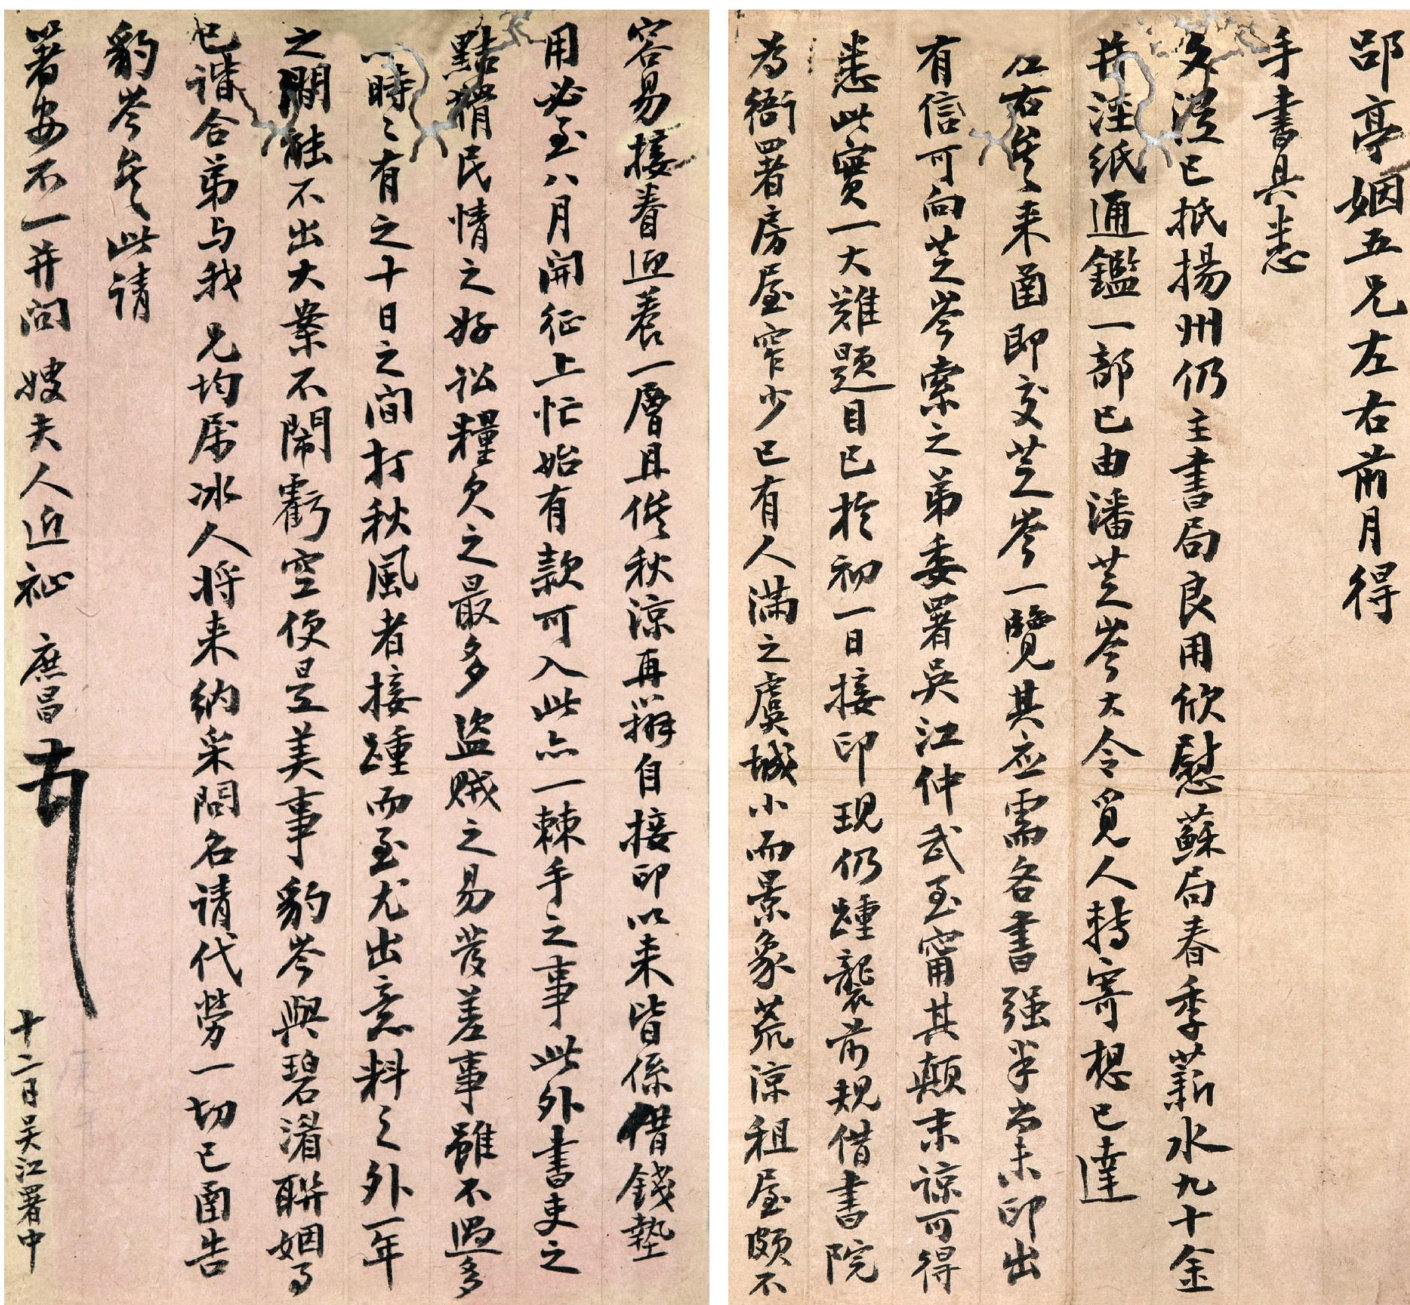 郘亭姻五兄左右前月得
手書具悉
文滢已抵揚州仍主書局良用欣慰蘇局春季薪水九十金
并涇紙通鑑一部已由潘芝岑大令覓人轉寄想已達
左右矣来函即交芝岑一覽其应需各書强半尚未印出
有信可向芝岑索之弟委署吴江仲武至甯其颠末諒可得
悉此實一大難題目已於初一日接印現仍踵襲前規借書院
為衙署房屋窄少已有人滿之虞城小而景象荒凉租屋頗不
容易接眷迎養一層且俟秋涼再辦自接印以来皆係借錢墊
用必至八月開征上忙始有款可入此亦一棘手之事此外書吏之
黠猾民情之好訟糧欠之最多盜贼之易發差事雖不過多
一時々有之十日之间打秋風者接踵而至尤出意料之外一年
之間能不出大案不鬧虧空便是美事豹岑與碧湄聯姻事
已諧合弟与我兄均属冰人将来納采問名请代勞一切已函告
豹岑矣此请
署安不一并问嫂夫人近祉 庶昌
十二日吴江署中